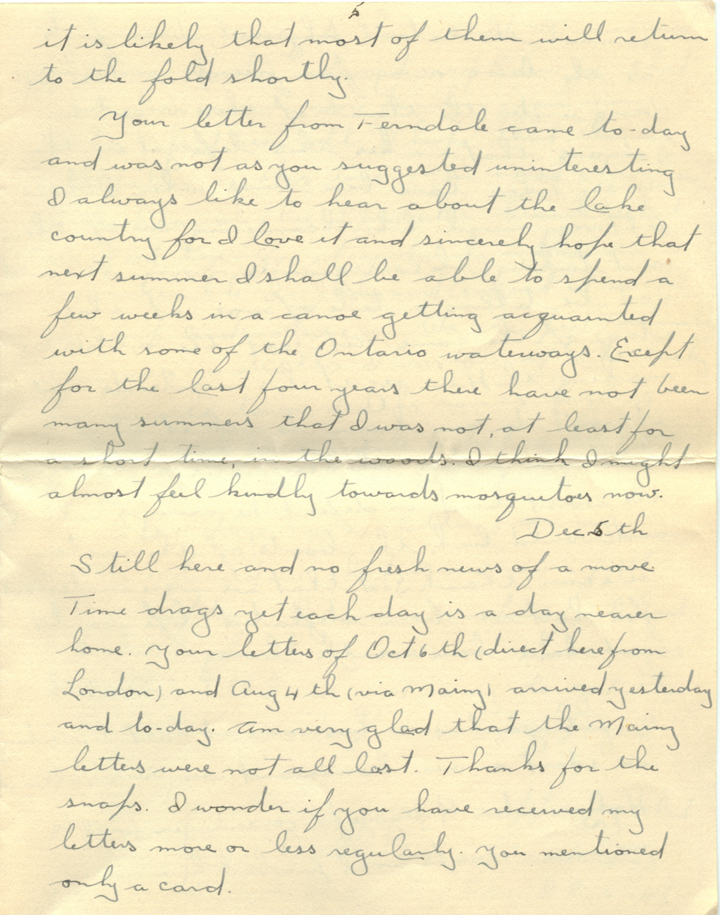 5
it is likely that most of them will return
to the fold shortly.
Your letter from Ferndale came to-day
and was not as you suggested uninteresting
I always like to hear about the lake
country for I love it and sincerely hope that
next summer I shall be able to spend a
few weeks in a canoe getting acquainted
with some of the Ontario waterways. Except
for the last four years there have not been
many summers that I was not, at least for
a short time, in the woods. I think I might
almost feel kindly towards mosquitoes now.
Dec 5th
Still here and no fresh news of a move
Time drags yet each day is a day nearer
home. Your letters of Oct 6th (direct here from
London) and Aug 4th (via Mainz) arrived yesterday
and to-day. Am very glad that the Mainz
letters were not all lost. Thanks for the
snaps. I wonder if you have received my
letters more or less regularly. You mentioned
only a card.